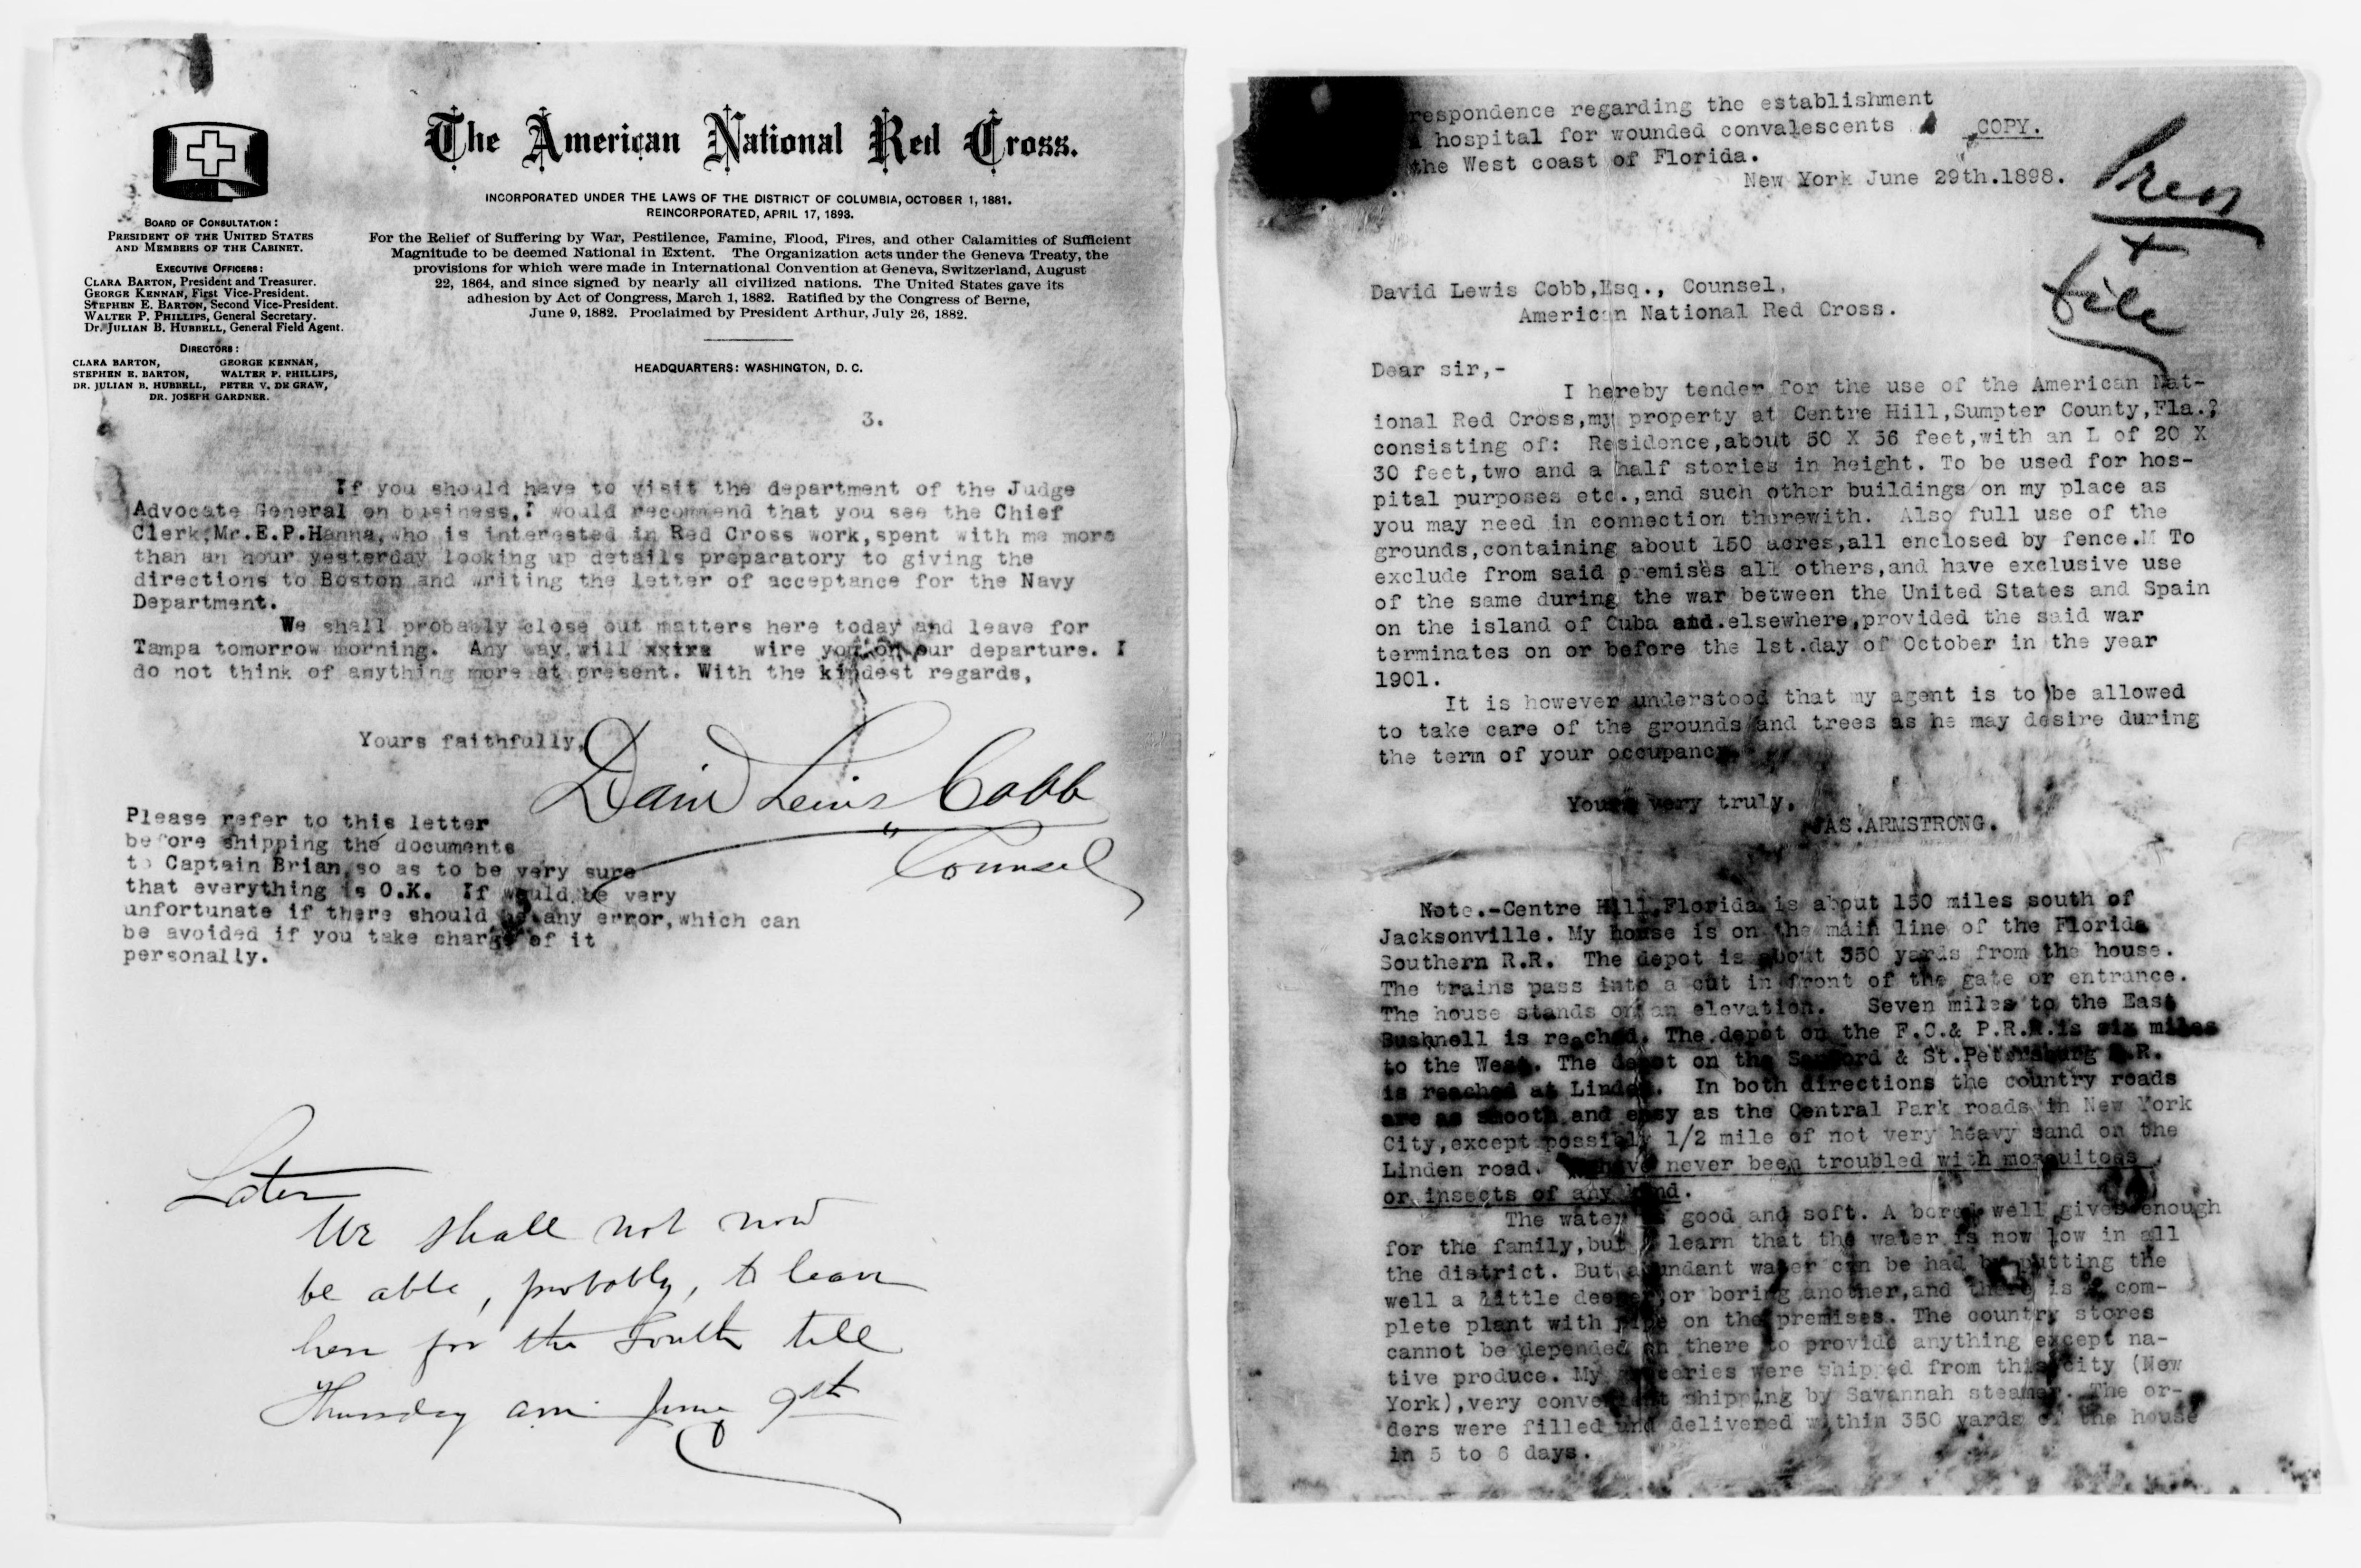 The American National Red Cross.
INCORPORATED UNDER THE LAWS OF THE DISTRICT OF COLUMBIA, OCTOBER 1, 1881.
REINCORPORATED, APRIL 17, 1893.
For the Relief of Suffering by War, Pestilence, Famine, Flood, Fires, and other Calamities of Sufficient
Magnitude to be deemed National in Extent. The Organization acts under the Geneva Treaty, the
provisions for which were made in International Convention at Geneva, Switzerland, August
22, 1864, and since signed by nearly all civilized nations. The United States gave its
adhesion by Act of Congress, March 1, 1882. Ratified by the Congress of Berne,
June 9, 1882. Proclaimed by President Arthur, July 26, 1882.
HEADQUARTERS: WASHINGTON, D. C.
BOARD OF CONSULTATION:
PRESIDENT OF THE UNITED STATES
AND MEMBERS OF THE CABINET.
EXECUTIVE OFFICERS:
CLARA BARTON, President and Treasurer.
GEORGE KENNAN, First Vice-President.
STEPHEN E. BARTON, Second Vice-President.
WALTER P. PHILLIPS, General Secretary.
Dr. JULIAN B. HUBBELL, General Field Agent.
DIRECTORS:
CLARA BARTON, GEORGE KENNAN,
STEPHEN E. BARTON, WALTER P. PHILLIPS,
DR. JULIAN B. HUBBELL, PETER V. DE GRAW,
DR. JOSEPH GARDNER.
3.
If you should have to visit the department of the Judge
Advocate General on business, I would recommend that you see the Chief
Clerk, Mr.E.P.Hanna, who is interested in Red Cross work, spent with me more
than an hour yesterday looking up details preparatory to giving the
directions to Boston and writing the letter of acceptance for the Navy
Department.
We shall probably close out matters here today and leave for
Tampa tomorrow morning. Any way, will xxixx wire you on our departure. I
do not think of anything more at present. With the kindest regards,
Yours faithfully,
David Lewis Cobb
Counsel
Please refer to this letter
before shipping the documents
to Captain Brian, so as to be very sure
that everything is O.K. If would be very
unfortunate if there should be any error, which can
be avoided if you take charge of it
personally.
Later
We shall not now
be able, probably, to leave
here for the South till
Thursday am June 9th
respondence regarding the establishment
hospital for wounded convalescents
the West coast of Florida.
COPY.
New York June 29th.1898.
Press
+
file
David Lewis Cobb,Esq., Counsel,
American National Red Cross.
Dear sir,-
I hereby tender for the use of the American Nat-
ional Red Cross,my property at Centre Hill,Sumpter County,Fla.,
consisting of: Residence,about 50 X 36 feet,with an L of 20 X
30 feet,two and a half stories in height. To be used for hos-
pital purposes etc.,and such other buildings on my place as
you may need in connection therewith. Also full use of the
grounds,containing about 150 acres,all enclosed by fence. To
exclude from said premises all others,and have exclusive use
of the same during the war between the United States and Spain
on the island of Cuba and.elsewhere,provided the said war
terminates on or before the 1st.day of October in the year
1901.
It is however understood that my agent is to be allowed
to take care of the grounds and trees as he may desire during
the term of your occupancy.
Yours very truly,
JAS.ARMSTRONG.
Note.-Centre Hill,Florida is about 150 miles south of
Jacksonville. My house is on the main line of the Florida
Southern R.R. The depot is about 350 yards from the house.
The trains pass into a cut in front of the gate or entrance.
The house stands on an elevation. Seven miles to the East
Bushnell is reached. The depot on the F.C.& P.R.R.is six miles
to the West. The depot on the Sanford & St.Petersburg R.R.
is reached at Linden. In both directions the country roads
are as smooth and easy as the Central Park roads in New York
City,except possibly 1/2 mile of not very heavy sand on the
Linden road. have never been troubled with mosquitoes
or insects of any kind.
The water is good and soft. A bored well gives enough
for the family,but I learn that the water is now low in all
the district. But abundant water can be had by putting the
well a little deeper,or boring another,and there is a com-
plete plant with pipe on the premises. The country stores
cannot be depended on there to provide anything except na-
tive produce. My groceries were shipped from this city (New
York),very convenient shipping by Savannah steamer. The or-
ders were filled and delivered within 350 yards of the house
in 5 to 6 days.